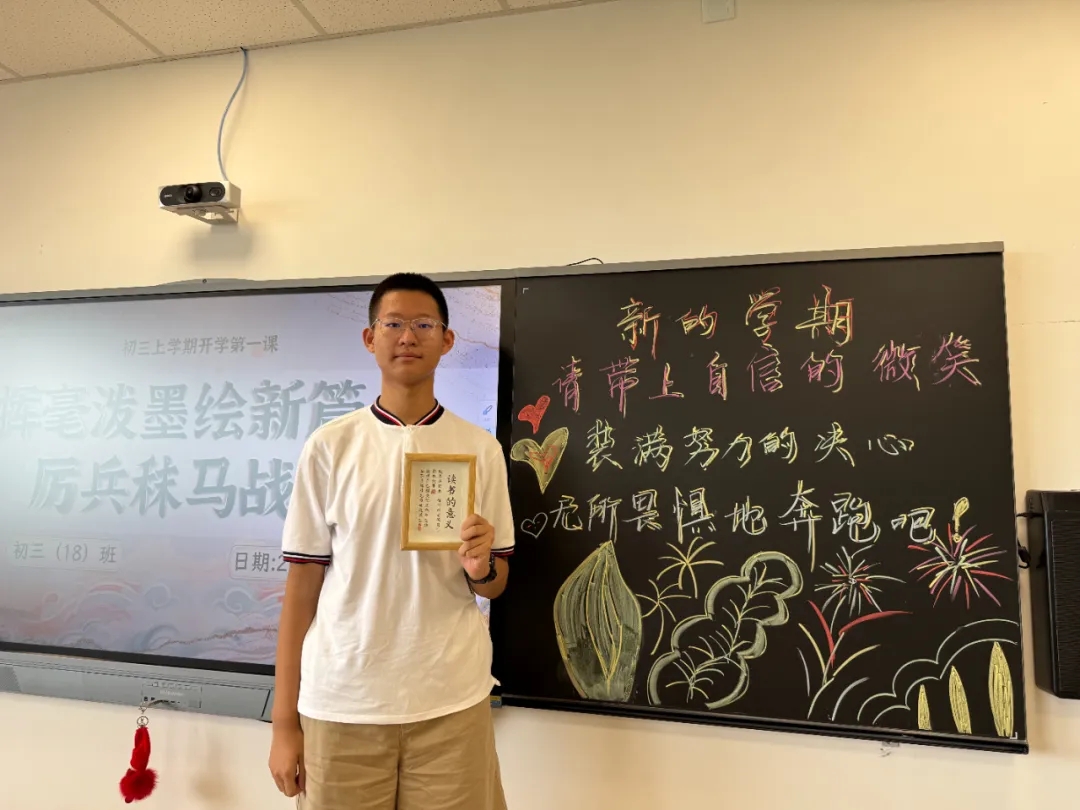 初三上学期开学第一课
挥毫泼墨绘新篇
厉兵秣马战
初三（18）班
日期:2
读书的意义
新的学期
请带上自信的微笑
装满努力的决心
无所畏惧地奔跑吧！